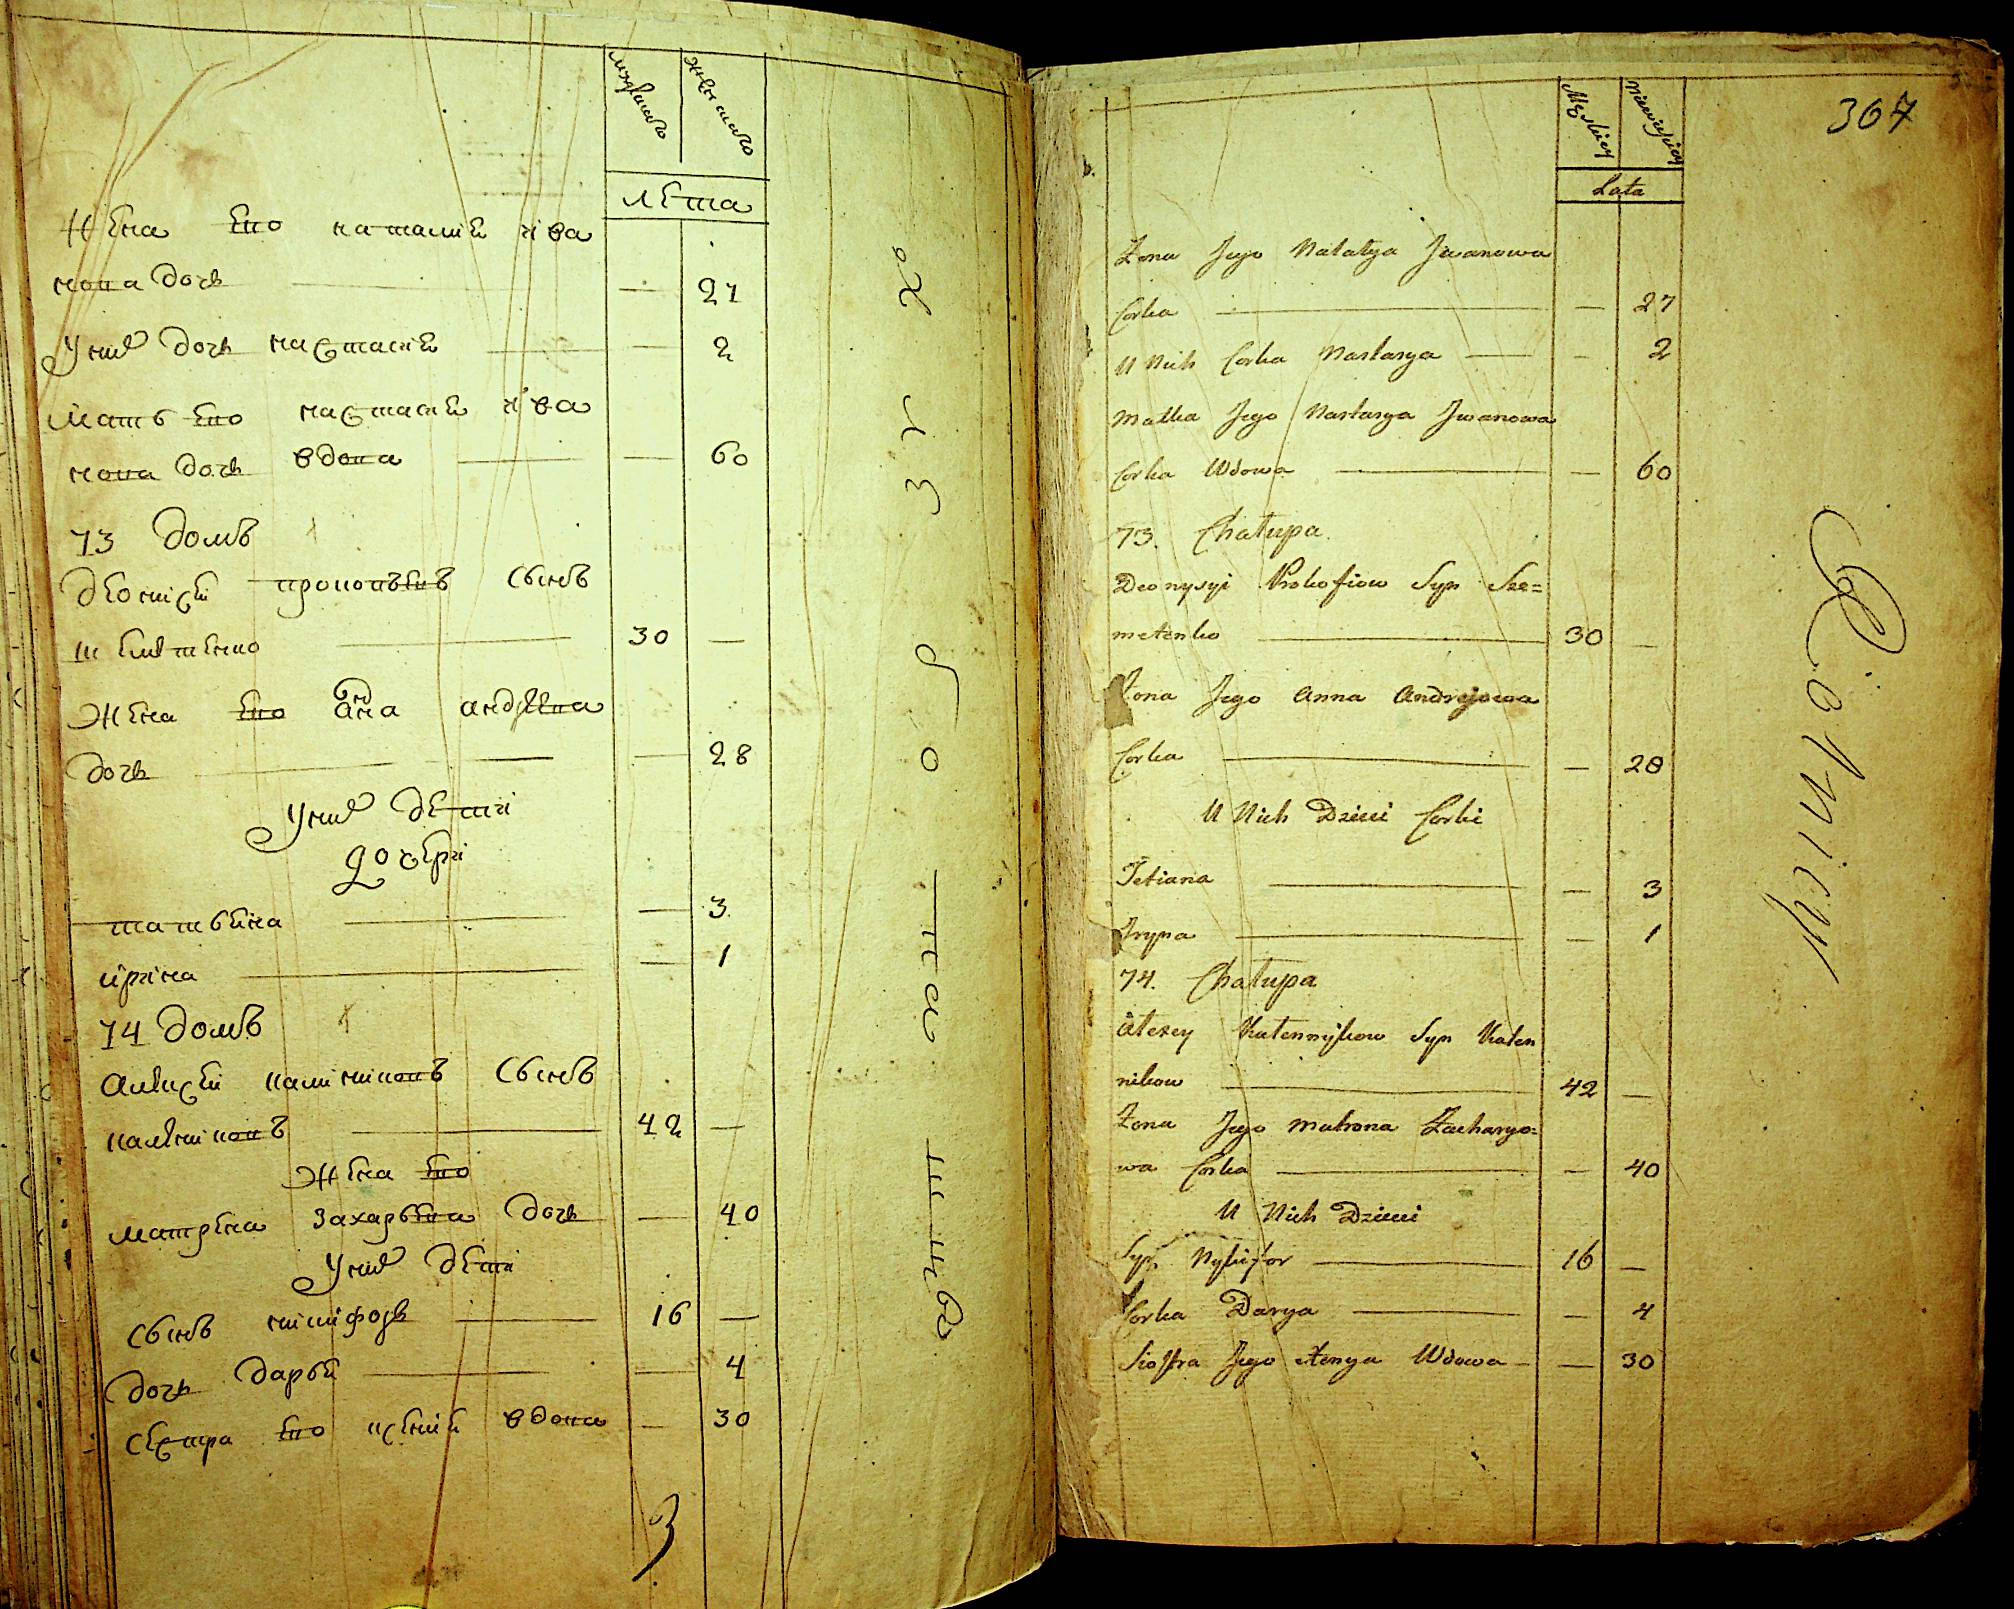 мужеского
женского
лета
жена его наталия ива
нова дочь — 27
у них дочь настасия — 2
мать его настасия ива
нова дочь вдова — 60
73 домъ
деонисей прокопьевъ сынъ
шеметенко 30 —
жена его анна андреева
дочь — 28
у них дети
дочери
татьяна — 3
ирина — 1
74 домъ
алексей калениковъ сынъ
калениковъ 42 —
жена его
матрена захарьева дочь — 40
у них дети
сынъ никифоръ 16 —
дочь дарья — 4
сестра его ксения вдова — 30
3
367
Męskiey
Niewieskiey
Lata
Zona Jego Natalya Jwanowa
Corka — 27
U Nich Corka Nastasya — 2
Matka Jego Nastasya Jwanowa
Corka Wdowa — 60
73. Chałupa
Deonysyi Prokofiow Syn Sze=
metenko 30 —
Zona Jego Anna Andrejowa
Corka — 28
U Nich Dzieci Corki
Tetiana — 3
Jryna — 1
74. Chałupa
Alexey Kalennykow Syn Kalen
nikow 42 —
Zona Jego Matrona Zacharyo=
wa Corka — 40
U Nich Dzieci
Syn Nykifor 16 —
Corka Darya — 4
Siostra Jego Xenya Wdowa — 30
Rolnicy